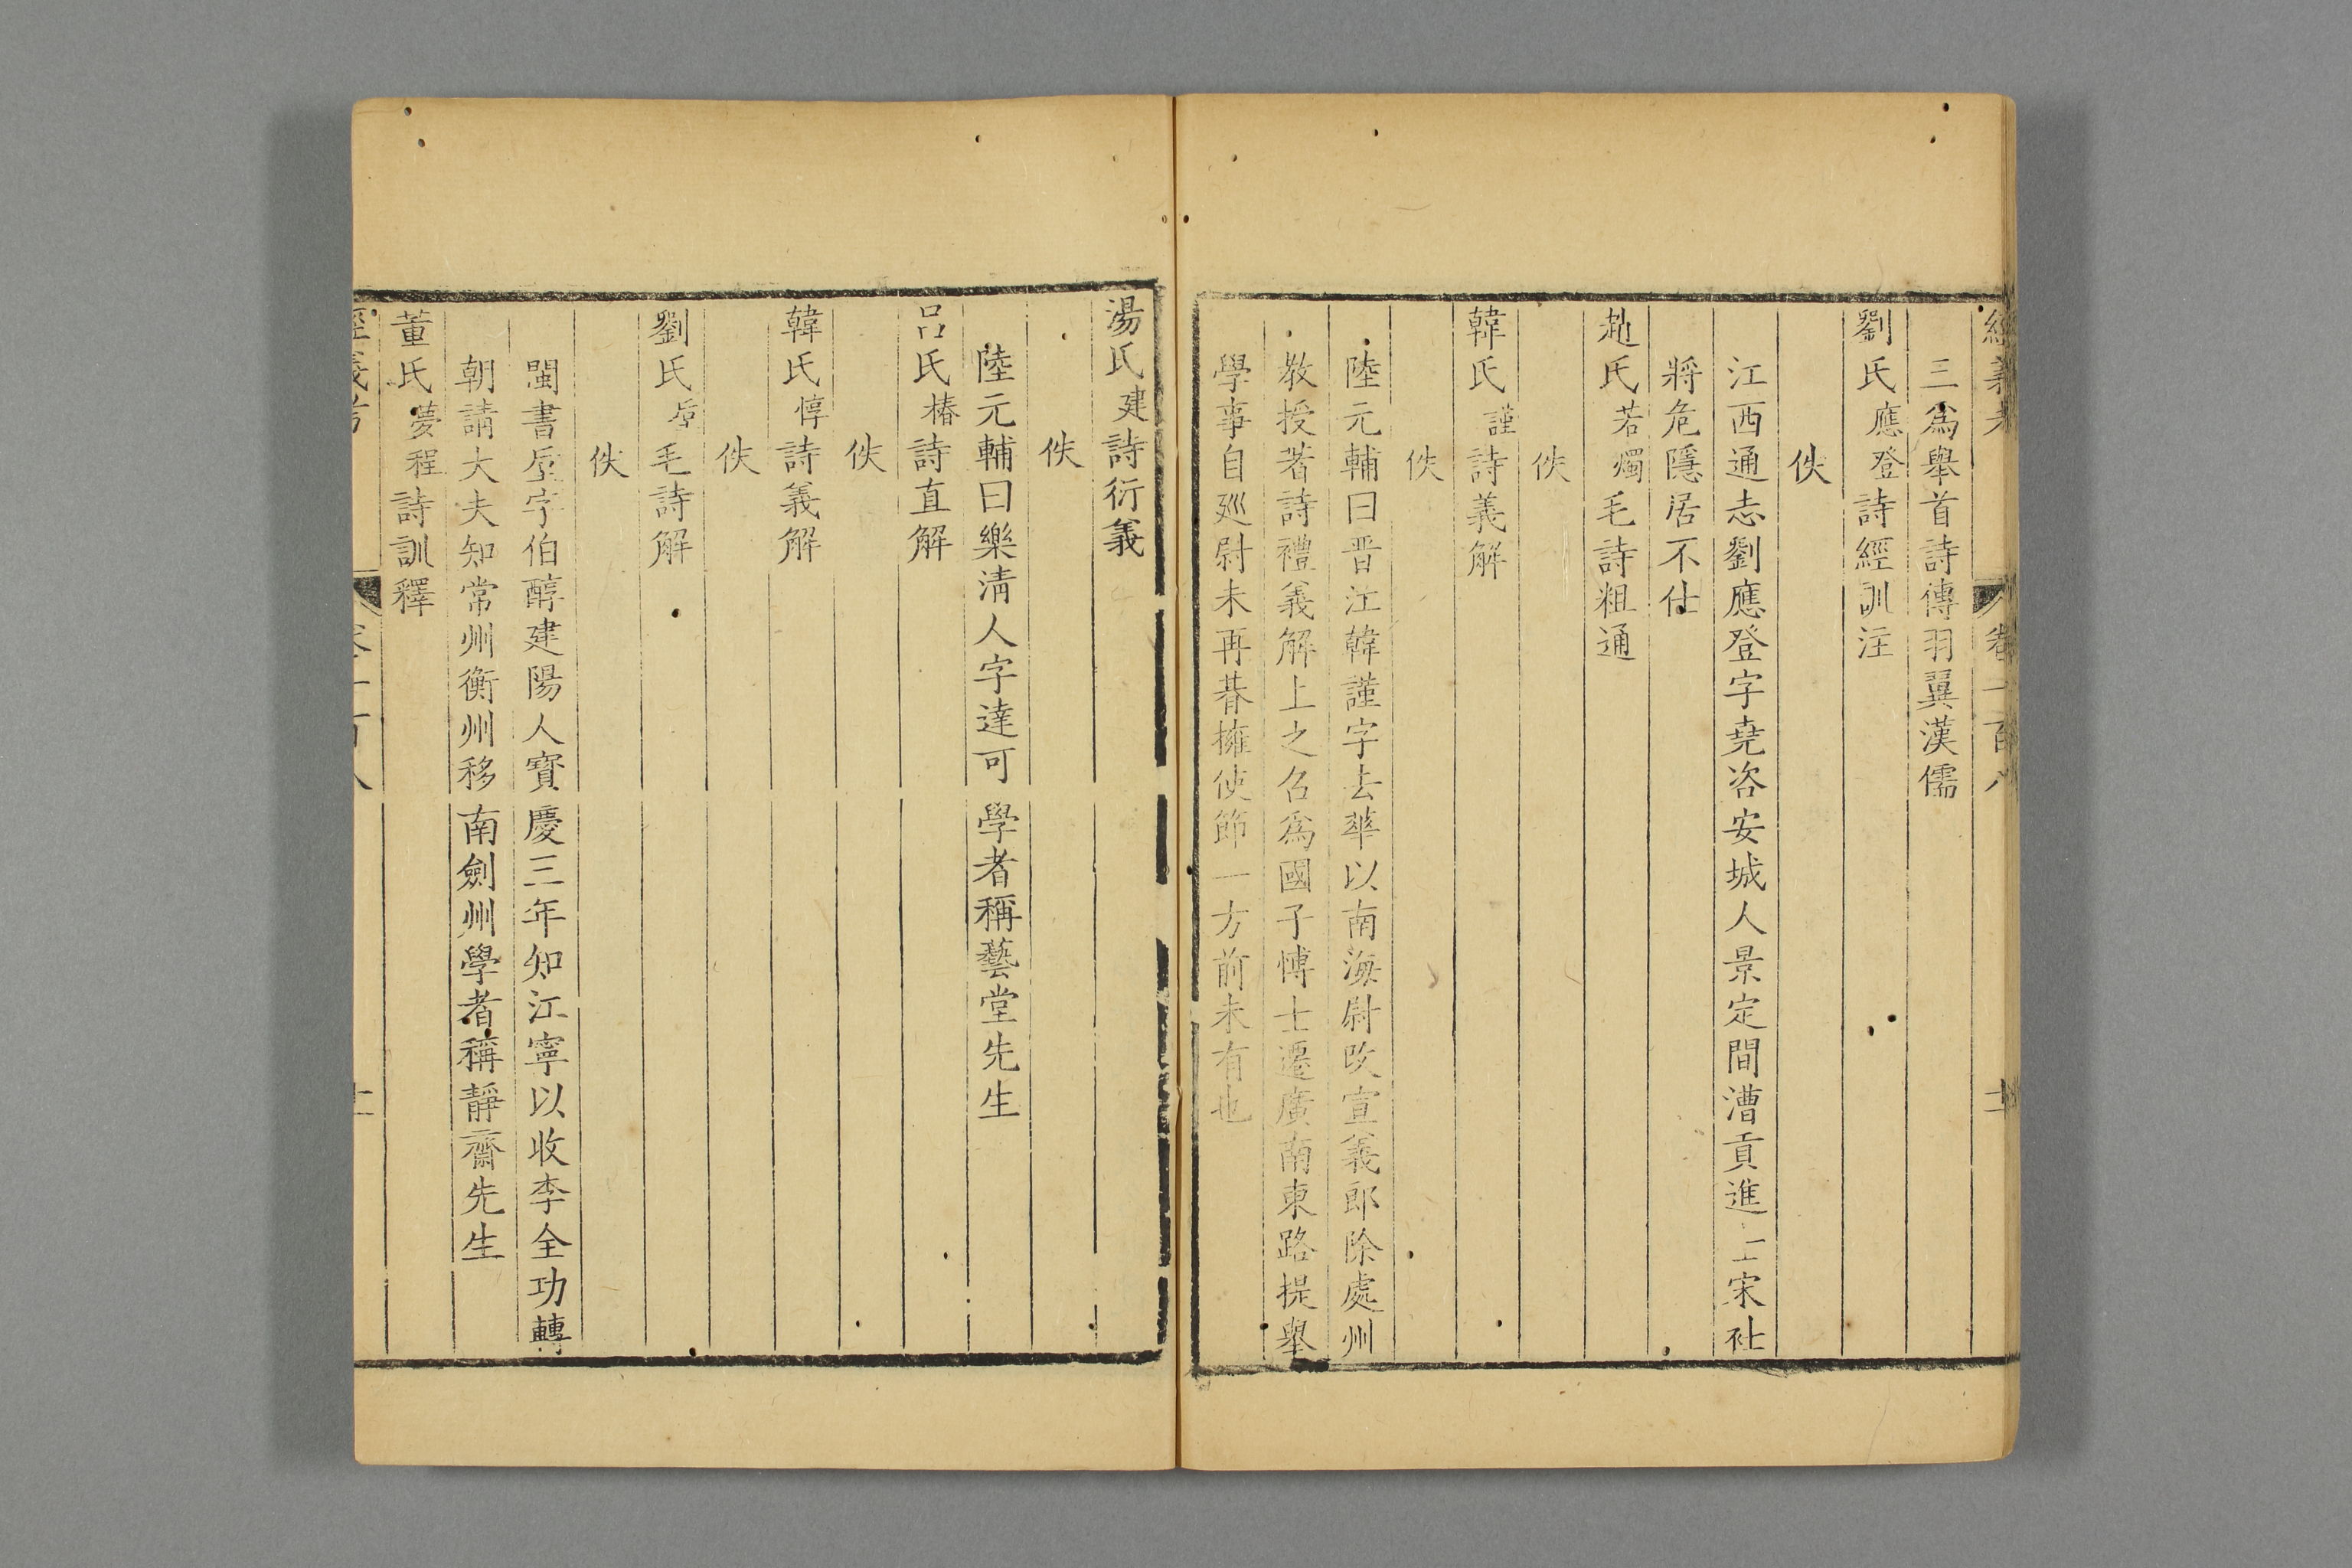 經義考 卷一百八 十
三爲舉首詩傳羽翼漢儒
劉氏應登詩經訓注
佚
江西通志劉應登字堯咨安城人景定間漕貢進士宋社
將危隱居不仕
趙氏若燭毛詩粗通
佚
韓氏謹詩義解
佚
陸元輔曰晋江韓謹字去華以南海尉改宣義郎除處州
敎授著詩禮義解上之召爲國子博士遷廣南東路提舉
學事自廵尉未再朞擁使節一方前未有也
湯氏建詩衍義
佚
陸元輔曰樂淸人字達可學者稱藝堂先生
呂氏椿詩直解
佚
韓氏惇詩義解
佚
劉氏垕毛詩解
佚
閩書垕字伯醇建陽人寶慶三年知江寧以收李全功轉
朝請大夫知常州衡州移南劍州學者稱靜齋先生
董氏夢程詩訓釋
經義考 卷一百八